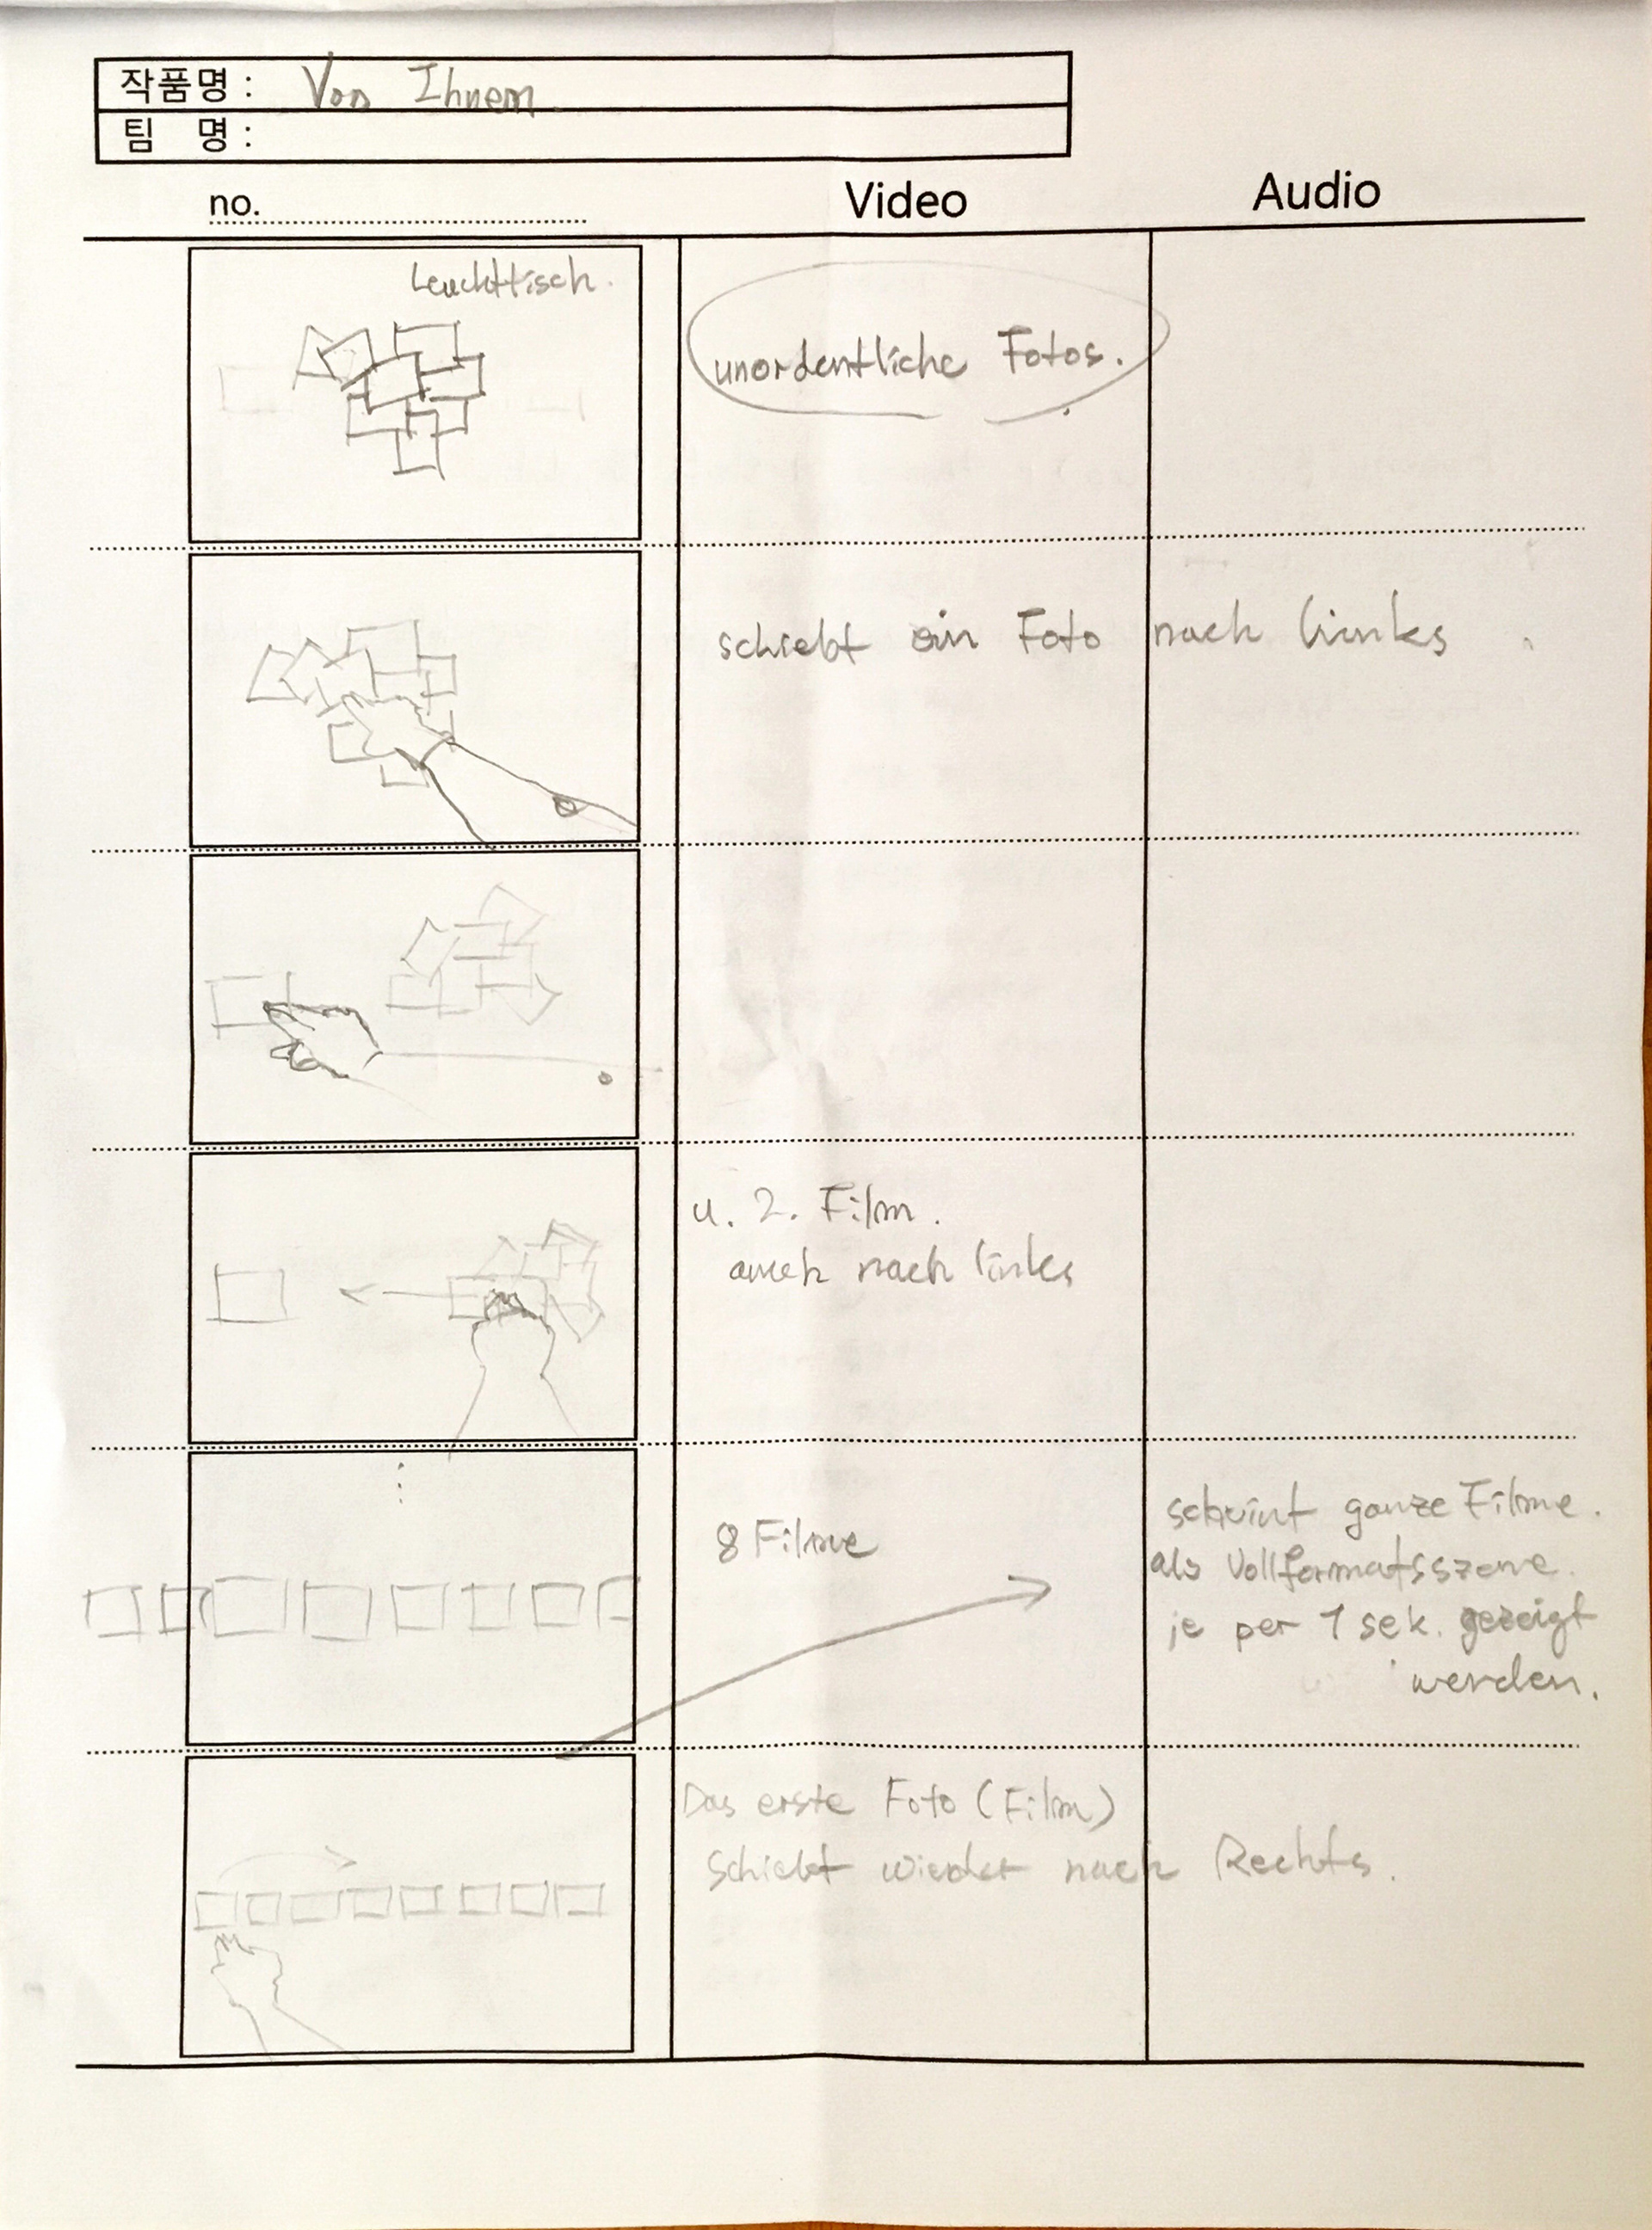 작품명 : Von Ihnen
팀 명 :
no.
Video
Audio
Leuchttisch.
unordentliche Fotos.
schiebt ein Foto nach links
u. 2. Film.
auch nach links
8 Filme
scheint ganze Filme.
als Vollformatsszene.
je per 1 sek. gezeigt
werden.
Das erste Foto (Film)
schiebt wieder nach Rechts.